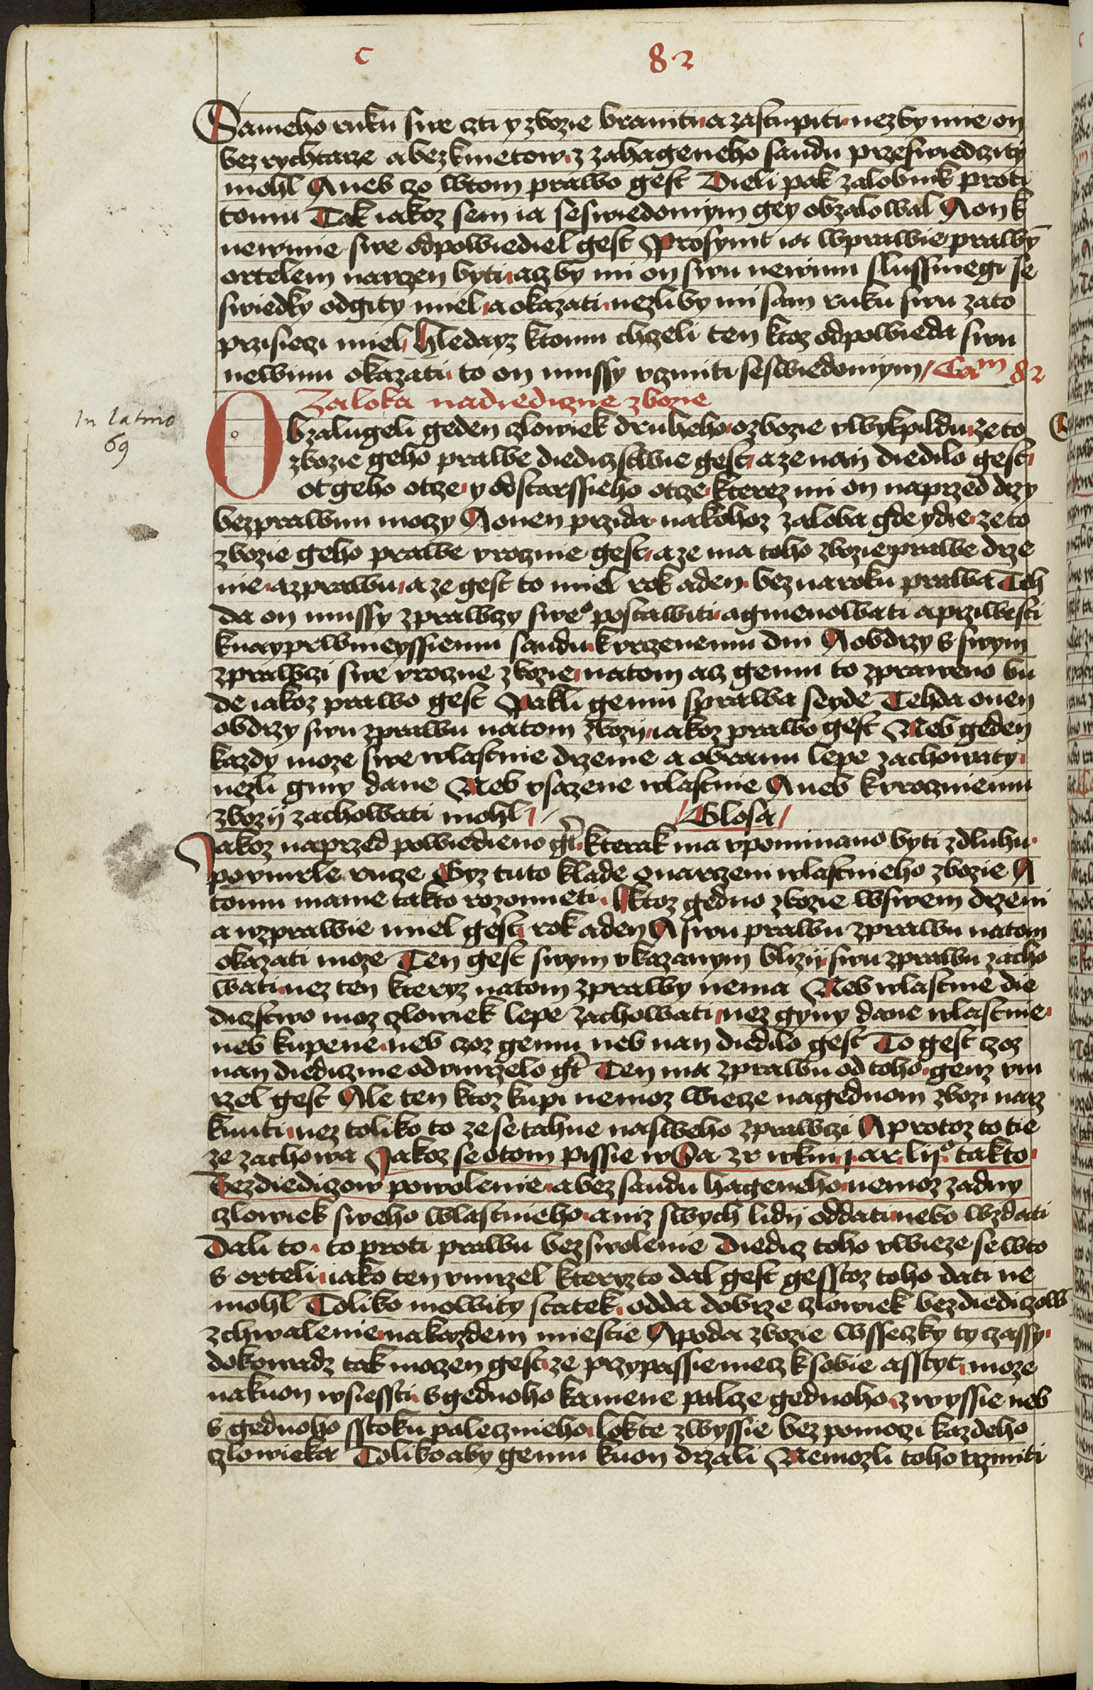 c 82
Sameho ruku swe czti y zbozie braniti a zastupiti nezby mie on
bez rychtarze a bez kmetow z zahageneho saudu przeswiedczity
mohl Aneb czo wtom prawo gest Dieli pak zalobnik proti
tomu Tak iakoz sem ia seswiedomym gey obzalowal A on k
newinie swe odpowiediel gest Prosymt ia wprawie prawym
ortelem narzen byti azby mi on swu newinu slussniegi se
swiedky odgity miel a okazati nezliby mi sam ruku swu zato
przisiezi miel Hledayz ktomu chzeli ten ktoz odpowieda swu
newinu okazati to on mussy vzniti seswiedomym Cam 82
Zaloba nadiediczne zbozie
In latino
69
Obzalugeli geden czlowiek druheho ozbozie vwykpildu ze to
zbozie geho prawe diediczstwie gest a ze nan diedilo gest
ot geho otcze y odstarssieho otcze kterez mi on naprzed drzy
bezprawnu moczy A onen przida nakohoz zaloba gde ydie ze to
zbozie geho prawe vroczne gest a ze ma toho zbozie prawe drze
nie a zprawu a ze gest to miel rok aden bez naroku prawa Teh
da on mussy zprawczy sweo postawiti a gmenowati a prziwesti
knayprwneyssiemu saudu kvrzenemu dni A obdrzy s swym
zprawczi swe vroczne zbozie natom acz gemu to zpraweno bu
de iakoz prawo gest Pakli gemu sprawa seyde Tehda onen
obdrzy swu zprawu natom zbozij iakoz prawo gest Neb geden
kazdy moze swe wlastnie drzenie a obranu lepe zachowaty
nezli giny dane Neb vsazene wlastnie Aneb kvroczniemu
zbozij zachowati mohl Glosa
Jakoz naprzed powiedieno gt kterak ma vpominano byti zdluhu
povmrle rucze Gyz tuto klade o narzeni wlastnieho zbozie A
tomu mame takto rozomneti Ktoz gedno zbozie wswem drzeni
a wzprawie miel gest rok aden A swu prawu zprawu natom
okazati moze Ten gest swym vkazanym blizij swu zprawu zacho
wati nez ten kteryz natom zprawy nema Neb wlastnie die
diczstwo moz czlowiek lepe zachowati nez gyny dane wlastnie
neb kupene neb czoz gemu neb nan diedilo gest To gest czoz
nan diedicznie odumrzelo gt Ten ma zprawu od toho genz vm
rzel gest Ale ten ktoz kupi nemoz wiecze nagednom zbozi narz
knuti nez toliko to ze se tahne nasweho zprawczi A protoz to tie
ze zachowa Jakoz se otom pissie takto
Bez diediczow powolenie a bez saudu hageneho nemoz zadny
czlowiek sweho wlastnieho aniz swych lidij oddati nebo wzdati
Dali to to proti prawu bez swolenie Diedicz toho vwieze se wto
s orteli iako ten vmrzel kteryzto dal gest gesstoz toho dati ne
mohl Toliko mowity statek odda dobrze czlowiek bez diediczow
zchwalenie nakazdem miestie A poda zbozie wsseczky ty czassy
dokowadz tak moczen gest ze przypassie mecz k sobie a sstyt moze
nakuon wsiessti s gednoho kamene palcze gednoho zwyssie neb
s gednoho sstoku paleczneho lokte zwyssie bez pomoczi kazdeho
czlowieka Toliko aby gemu kuon drzali Nemozli toho vczniti